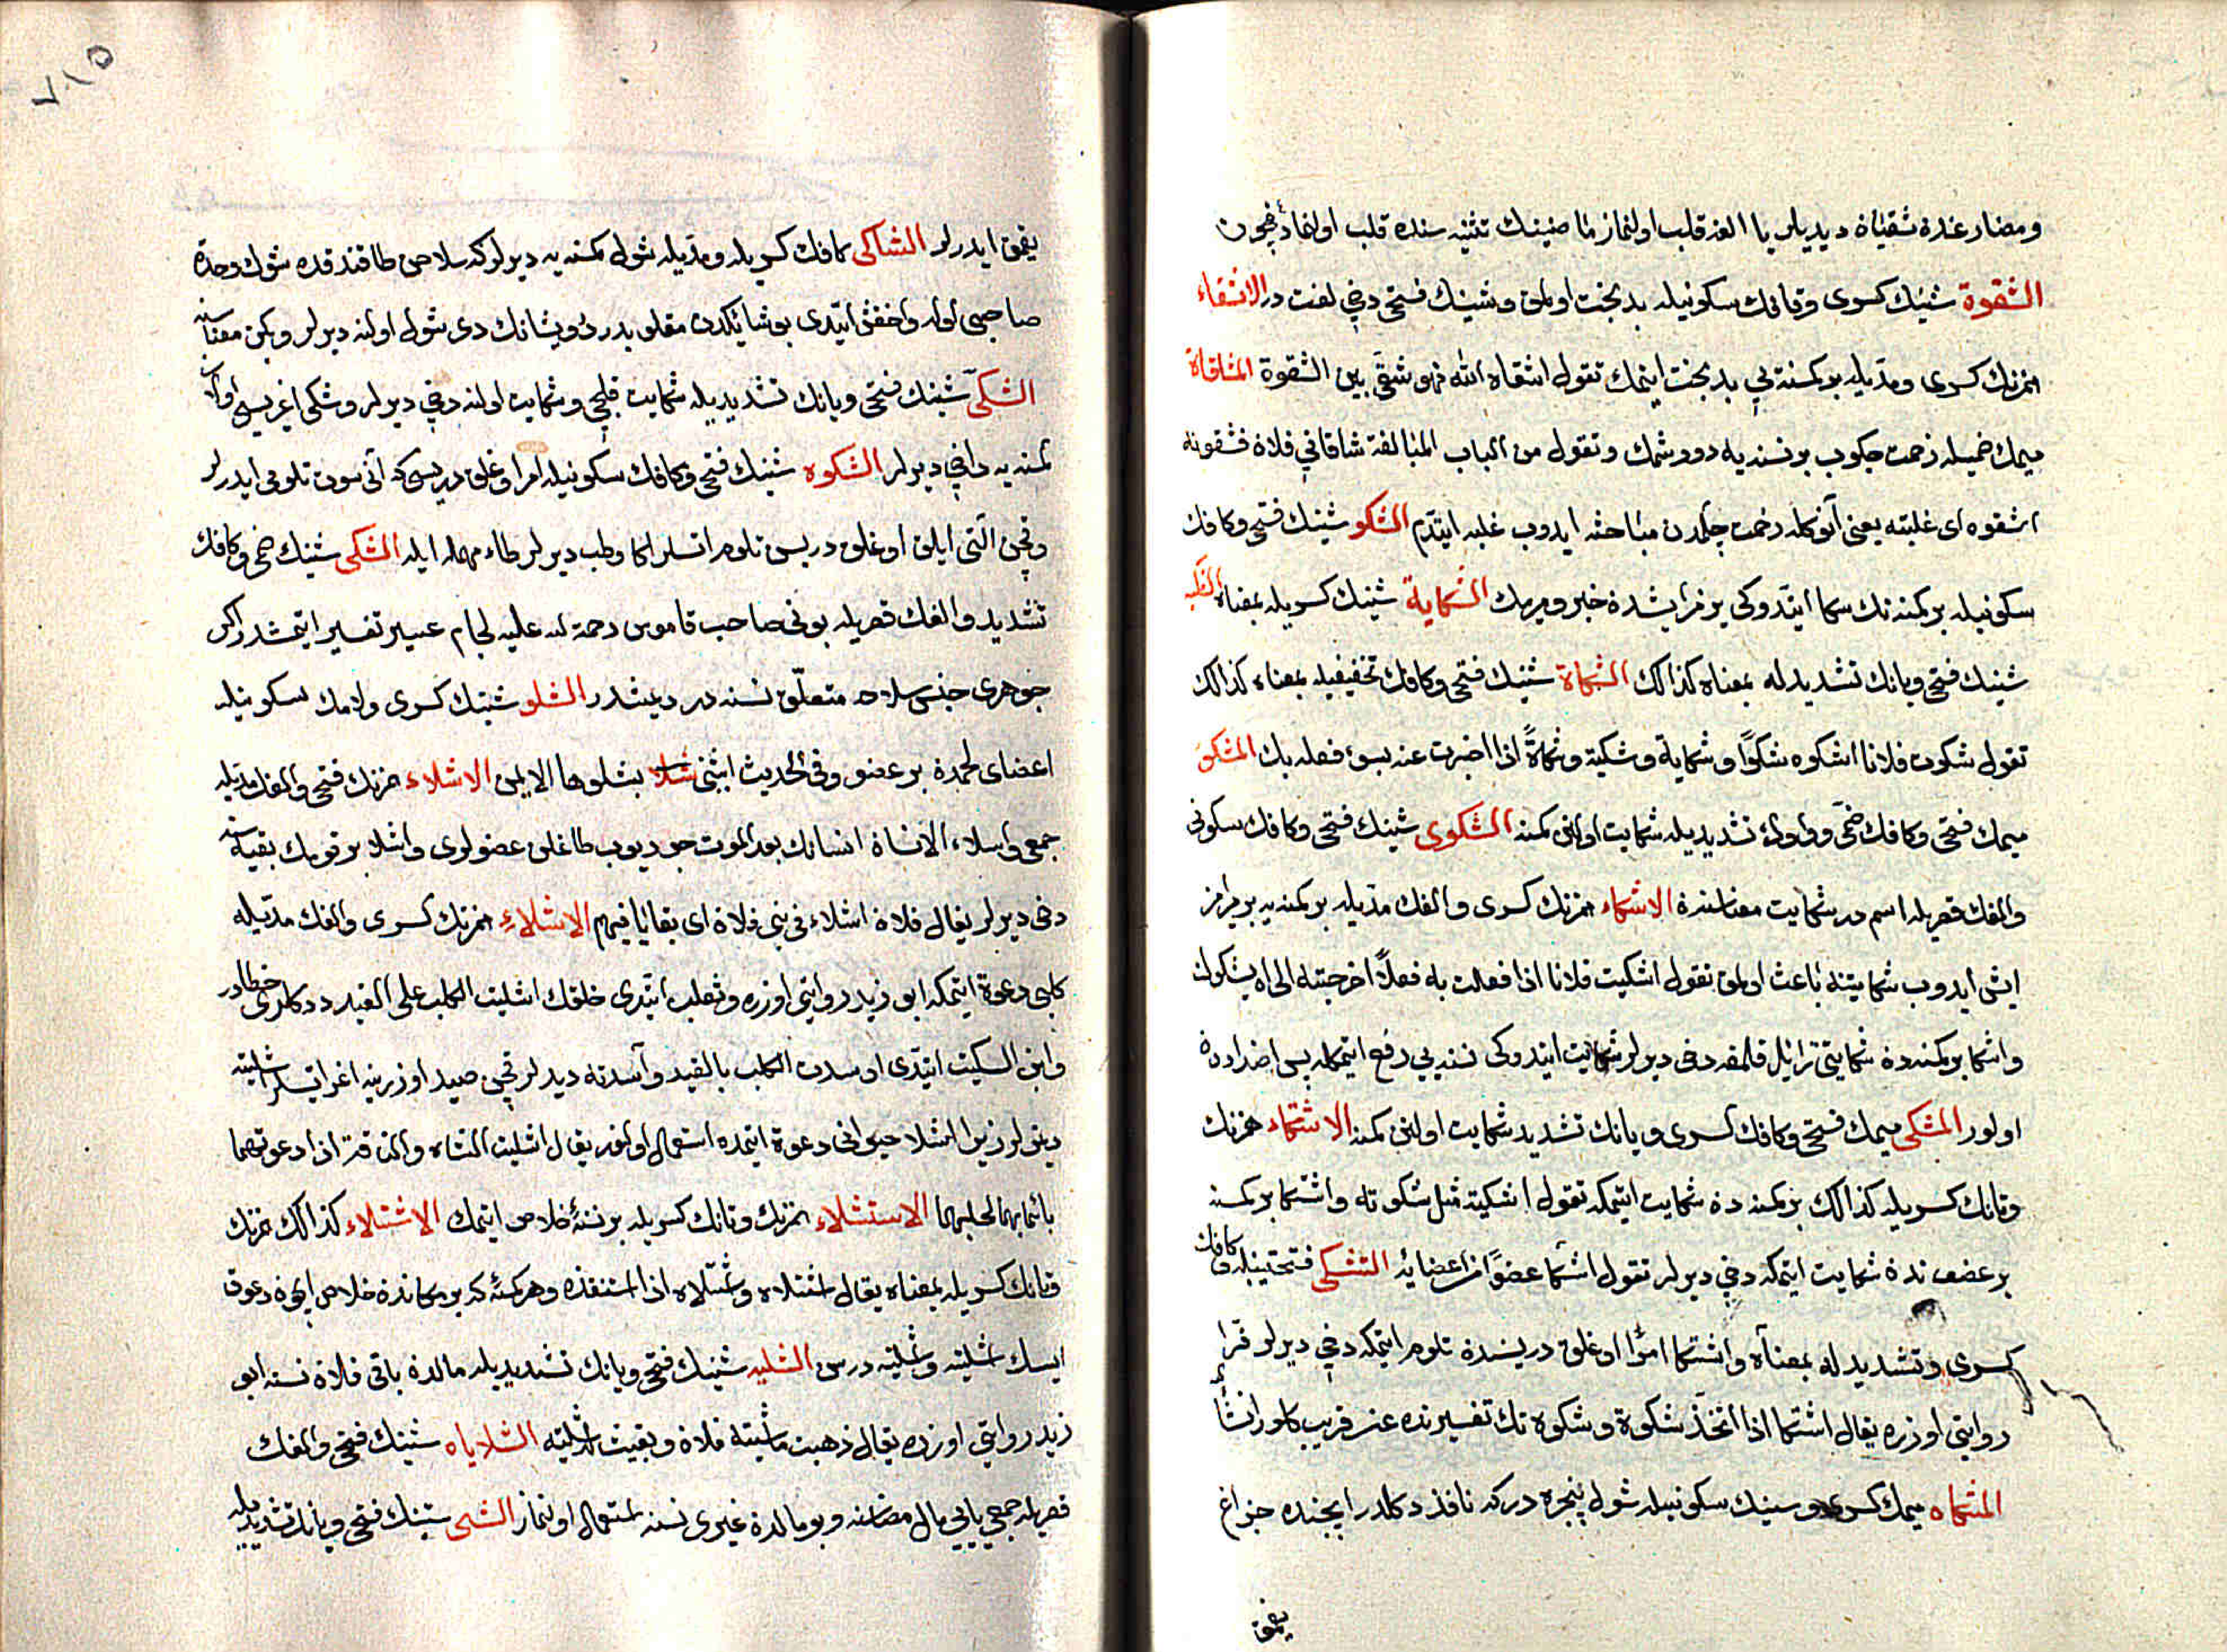 ومضارعنده شقيان ديديلر يا الفه قلب اولنماز ماضينك تثنيه سنده قلب اولنمادغيچون
الشقوة شينك كسرى وقافك سكونيله بدبخت اولمق وشينك فتحى دخى لغت در الاشقاء
همزنك كسرى ومدّيله بر كمسنه يى بدبخت ايتمك تقول اشقاه الله فهو شقى بين الشقوة المشاقاة
ميمك ضميله زحمت چكوب بر نسنه يه دورشمك وتقول من الباب المغالبة شاقانى فلان فشقوته
اشقوه اى غلبته يعنى آنوكله زحمت چكمدن مباحثه ايدوب غلبه ايتدم الشكو شينك فتحى وكافك
سكونيله بر كمسنه نك سكا ايتدوكى يرمز ايشدن خبر ويرمك الشكاية شينك كسريله بمعناه الشكية
شينك فتحى ويانك تشديديله بمعناه كذالك الشكاة شينك فتحى وكافك تخفيفيله بمعناه كذالك
تقول شكوت فلانا اشكوه شكوًا وشكاية وشكية وشكاةً اذا اخبرت عنه بسوء فعله بك المشكو
ميمك فتحى وكافك ضمى وواوك تشديديله شكايت اولنن كمسنه الشكوى شينك فتحى وكافك سكونى
والفك قصريله اسم در شكايت معناسنه الاشكاء همزنك كسرى والفك مدّيله بر كمسنه يه بر يرمز
ايش ايدوب شكايتنه باعث اولمق تقول اشكيت فلانا اذا فعلت به فعلاً احوجته الى ان يشكوك
واشكا بر كمسنه دن شكايتى زائل قلمغه دخى ديرلر شكايت ايتدوكى نسنه يى رفع ايتمكله پس اضداددن
اولور المشكى ميمك فتحى وكافك كسرى ويانك تشديديله شكايت اولنن كمسنه الاشتكاء همزنك
وتانك كسريله كذالك بر كمسنه دن شكايت ايتمكه تقول اشتكيته مثل شكوته واشتكا بر كمسنه
بر عضوندن شكايت ايتمكه دخى ديرلر تقول اشتكا عضوًا من اعضائه التشكى فتحتينله وكافك
كسرى وتشديديله بمعناه واشتكا امرا اوغلق دريسندن تلوم ايتمكه دخى ديرلر فرا
روايتى اوزره يقال اشتكا اذا اتخذ شكوة وشكوه نك تفسيرنده عن قريب كلور انشا
المشكاه ميمك كسرى وسينك سكونيله شول پنجره دركه نافذ دكلدر ايچنده چراغ
يقمق
يقمق ايدرلر الشاكى كافك كسريله ومدّيله شول كمسنه يه ديرلركه سلاحى طاقنه قده شوك وحده
صاحبى اوله واخفش ايتدى بو شايكدن مقلوبدر وشانك دى شول اولنه ديرلر وبكن معناسنه
الشكى شينك فتحى ويانك تشديديله شكايت قلجى وشكايت اولنه دخى ديرلر وشكى اغريجى اولان
نسنه يه دخى ديرلر الشكوه شينك فتحى وكافك سكونيله امر اوغلق دريسى كه آنى سوت تلومى ايدرلر
وقچن آلتى ايلق اوغلق دريسى تلوم اتسلر اكا وطب ديرلر طاء مهمله ايله الشكى شينك ضمى وكافك
تشديدى والفك قصريله بونى صاحب قاموس رحمة الله عليه لجام عسير تفسير ايتمشدر اكر
جوهرى جنس سلاحه متعلّق نسنه در ديمشدر الشلو شينك كسرى ولامك سكونيله
اعضاى لحمدن بر عضو وفى الحديث ايتنى بشلوها الايمن الاشلاء همزنك فتحى والفك مدّيله
جمعى واشلاء الانسان انسانك بعد الموت چوريوب طاغلن عضولرى واشلا بر قومك بقيه سنه
دخى ديرلر يقال فلان اشلاء فى بنى فلان اى بقايا فيهم الاشلاء همزنك كسرى والفك مدّيله
كلبى دعوة ايتمكه ابو زيد روايتى اوزره وثعلب ايتدى خلقك اشليت الكلب على الصيد ددكلرى خطادر
وابن السكيت ايتدى اوسدت الكلب بالصيد وآسدته ديدلر قچن صيد اوزرينه اغرا اتسلر اشليته
ديمزلر زيرا اشلا حيوانى دعوة ايتمده استعمال اولنور يقال اشليت الشاه والناقة اذا دعوتهما
باسمائهما لحلبهما الاستشلاء همزنك وتانك كسريله بر نسنه خلاص ايتمك الاشتلاء كذالك همزنك
وتانك كسريله بمعناه يقال استشلاه واشتلاه اذا استنقذه وهر كمسنه كه بر مكاندن خلاص ايچون دعوت
ايسك اشليته واشتليته درسن الشليه شينك فتحى ويانك تشديديله مالدن باقى قلان نسنه ابو
زيد روايتى اوزره يقال ذهبت ماشية فلان وبقيت له شلية الشلاياه شينك فتحى والفك
قصريله جمعى يايى مال مضاسنه وبو مالدن غيرى نسنه استعمال اولنماز الشى شينك فتحى ويانك تشديديله